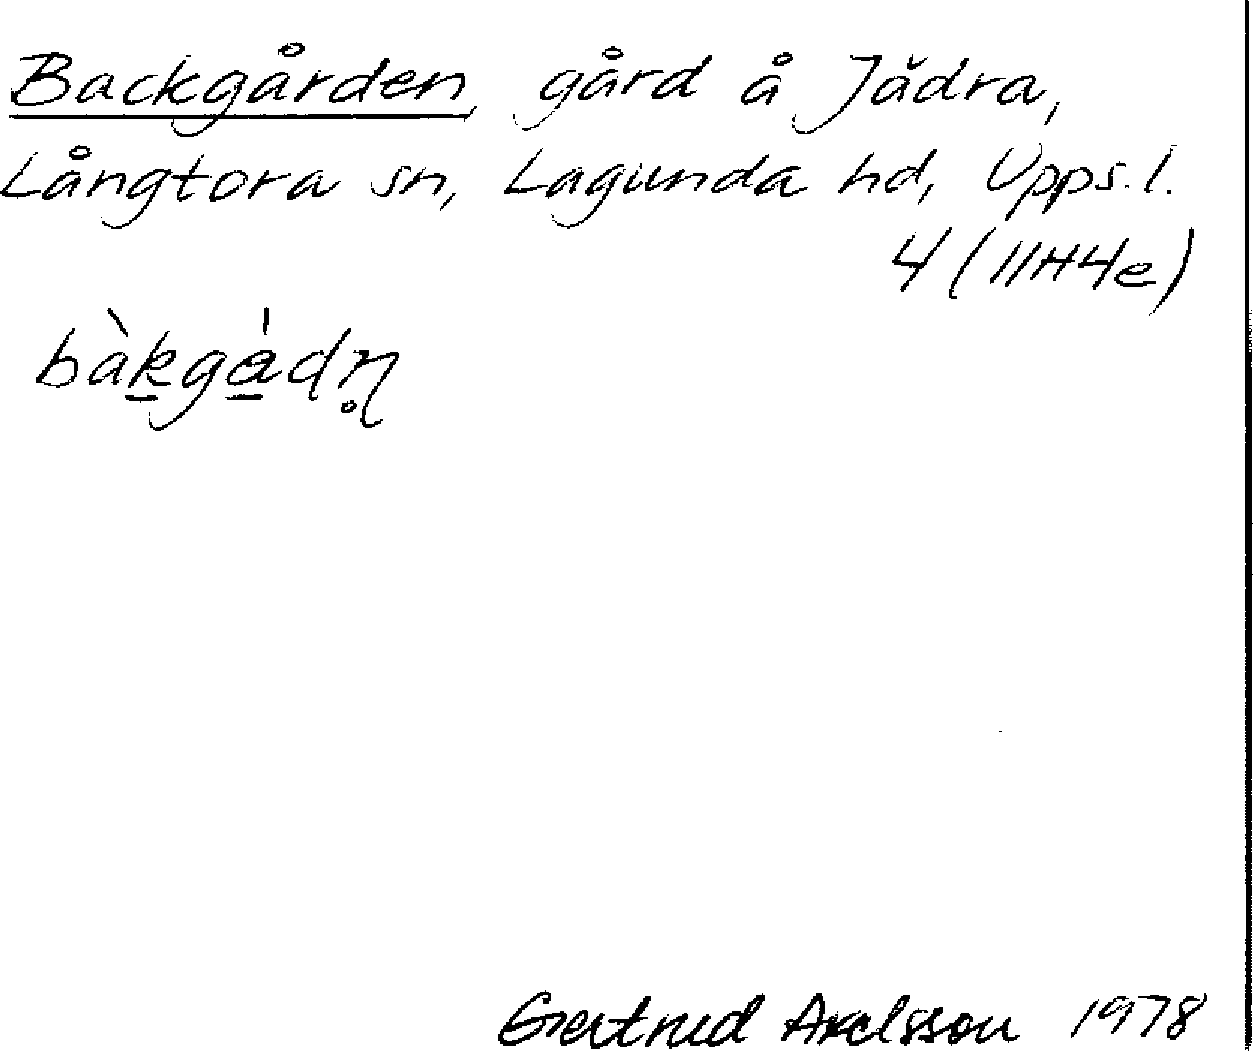 Backgården, gård å Jädra,
Långtora sn, Lagunda hd, Upps. l.
4 (11H4e)
bàk̠gà̠dn̥
Gertrud Axelsson 1978